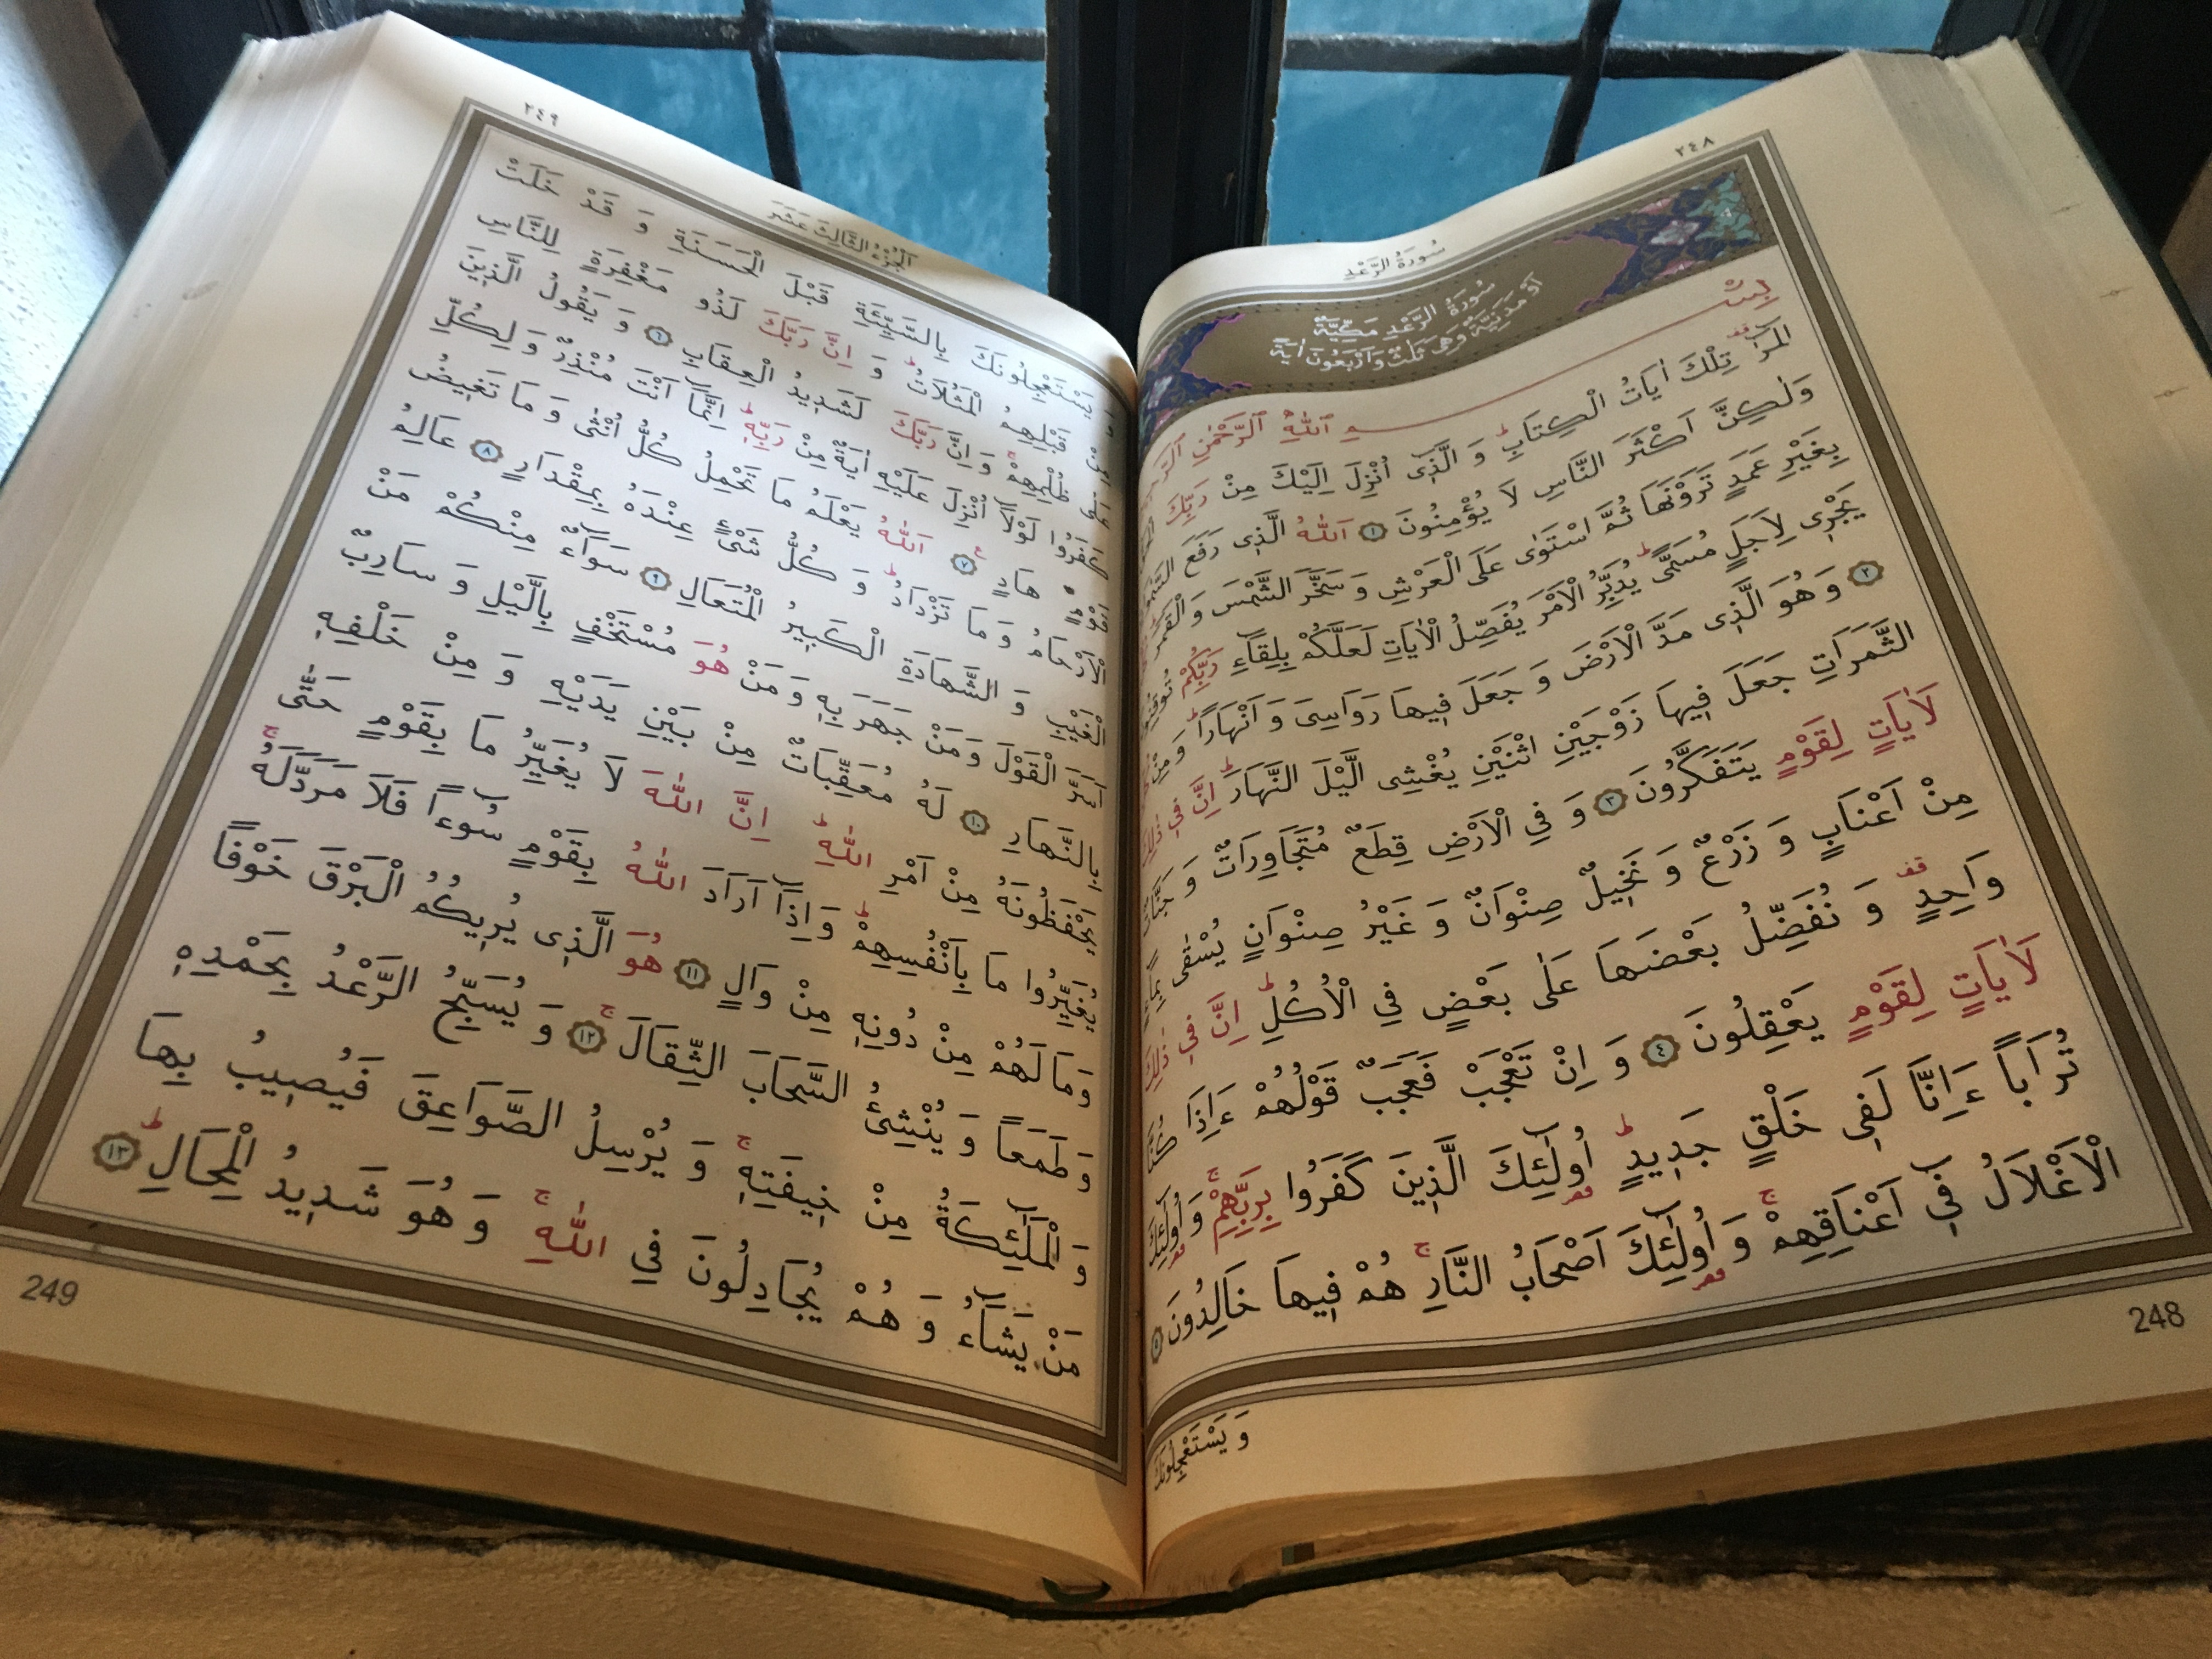 ٢٤٨
سُورَةُ الرَّعْدِ
سُورَةُ الرَّعْدِ مَكِّيَّةٌ
اَوْ مَدَنِيَّةٌ وَهِىَ ثَلٰثٌ وَاَرْبَعُونَ اٰيَةً
بِسْمِ اللّٰهِ الرَّحْمٰنِ
الٓمٓرٰ تِلْكَ اٰيَاتُ الْكِتَابِ وَ الَّذِى اُنْزِلَ اِلَيْكَ مِنْ رَبِّكَ
وَلٰكِنَّ اَكْثَرَ النَّاسِ لَا يُؤْمِنُونَ ١ اَللّٰهُ الَّذِى رَفَعَ
بِغَيْرِ عَمَدٍ تَرَوْنَهَا ثُمَّ اسْتَوٰى عَلَى الْعَرْشِ وَ سَخَّرَ الشَّمْسَ وَ الْقَمَرَ
يَجْرِى لِاَجَلٍ مُسَمًّى يُدَبِّرُ الْاَمْرَ يُفَصِّلُ الْاٰيَاتِ لَعَلَّكُمْ بِلِقَاۤءِ رَبِّكُمْ تُوقِنُونَ
٢ وَ هُوَ الَّذِى مَدَّ الْاَرْضَ وَ جَعَلَ فِيهَا رَوَاسِىَ وَ اَنْهَارًا وَ مِنْ
الثَّمَرَاتِ جَعَلَ فِيهَا زَوْجَيْنِ اثْنَيْنِ يُغْشِى الَّيْلَ النَّهَارَ اِنَّ فِى ذٰلِكَ
لَاٰيَاتٍ لِقَوْمٍ يَتَفَكَّرُونَ ٣ وَ فِي الْاَرْضِ قِطَعٌ مُتَجَاوِرَاتٌ وَ جَنَّاتٌ
مِنْ اَعْنَابٍ وَ زَرْعٌ وَ نَخِيلٌ صِنْوَانٌ وَ غَيْرُ صِنْوَانٍ يُسْقٰى بِمَاۤءٍ
وَاحِدٍ وَ نُفَضِّلُ بَعْضَهَا عَلٰى بَعْضٍ فِي الْاُكُلِ اِنَّ فِى ذٰلِكَ
لَاٰيَاتٍ لِقَوْمٍ يَعْقِلُونَ ٤ وَ اِنْ تَعْجَبْ فَعَجَبٌ قَوْلُهُمْ ءَاِذَا كُنَّا
تُرَابًا ءَاِنَّا لَفِى خَلْقٍ جَدِيدٍ اُولٰۤئِكَ الَّذِينَ كَفَرُوا بِرَبِّهِمْ وَ اُولٰۤئِكَ
الْاَغْلَالُ فِىۤ اَعْنَاقِهِمْ وَ اُولٰۤئِكَ اَصْحَابُ النَّارِ هُمْ فِيهَا خَالِدُونَ ٥
وَ يَسْتَعْجِلُونَكَ
248
٢٤٩
اَلْجُزْءُ الثَّالِثَ عَشَرَ
وَ يَسْتَعْجِلُونَكَ بِالسَّيِّئَةِ قَبْلَ الْحَسَنَةِ وَ قَدْ خَلَتْ
مِنْ قَبْلِهِمُ الْمَثُلَاتُ وَ اِنَّ رَبَّكَ لَذُو مَغْفِرَةٍ لِلنَّاسِ
عَلٰى ظُلْمِهِمْ وَ اِنَّ رَبَّكَ لَشَدِيدُ الْعِقَابِ ٦ وَ يَقُولُ الَّذِينَ
كَفَرُوا لَوْلَاۤ اُنْزِلَ عَلَيْهِ اٰيَةٌ مِنْ رَبِّهِ اِنَّمَاۤ اَنْتَ مُنْذِرٌ وَ لِكُلِّ
قَوْمٍ هَادٍ ٧ اَللّٰهُ يَعْلَمُ مَا تَحْمِلُ كُلُّ اُنْثٰى وَ مَا تَغِيضُ
الْاَرْحَامُ وَ مَا تَزْدَادُ وَ كُلُّ شَىْءٍ عِنْدَهُ بِمِقْدَارٍ ٨ عَالِمُ
الْغَيْبِ وَ الشَّهَادَةِ الْكَبِيرُ الْمُتَعَالِ ٩ سَوَاۤءٌ مِنْكُمْ مَنْ
اَسَرَّ الْقَوْلَ وَ مَنْ جَهَرَ بِهِ وَ مَنْ هُوَ مُسْتَخْفٍ بِالَّيْلِ وَ سَارِبٌ
بِالنَّهَارِ ١٠ لَهُ مُعَقِّبَاتٌ مِنْ بَيْنِ يَدَيْهِ وَ مِنْ خَلْفِهِ
يَحْفَظُونَهُ مِنْ اَمْرِ اللّٰهِ اِنَّ اللّٰهَ لَا يُغَيِّرُ مَا بِقَوْمٍ حَتّٰى
يُغَيِّرُوا مَا بِاَنْفُسِهِمْ وَ اِذَاۤ اَرَادَ اللّٰهُ بِقَوْمٍ سُوۤءًا فَلَا مَرَدَّ لَهُ
وَمَا لَهُمْ مِنْ دُونِهِ مِنْ وَالٍ ١١ هُوَ الَّذِى يُرِيكُمُ الْبَرْقَ خَوْفًا
وَ طَمَعًا وَ يُنْشِئُ السَّحَابَ الثِّقَالَ ١٢ وَ يُسَبِّحُ الرَّعْدُ بِحَمْدِهِ
وَ الْمَلٰۤئِكَةُ مِنْ خِيفَتِهِ وَ يُرْسِلُ الصَّوَاعِقَ فَيُصِيبُ بِهَا
مَنْ يَشَاۤءُ وَ هُمْ يُجَادِلُونَ فِي اللّٰهِ وَ هُوَ شَدِيدُ الْمِحَالِ ١٣
249